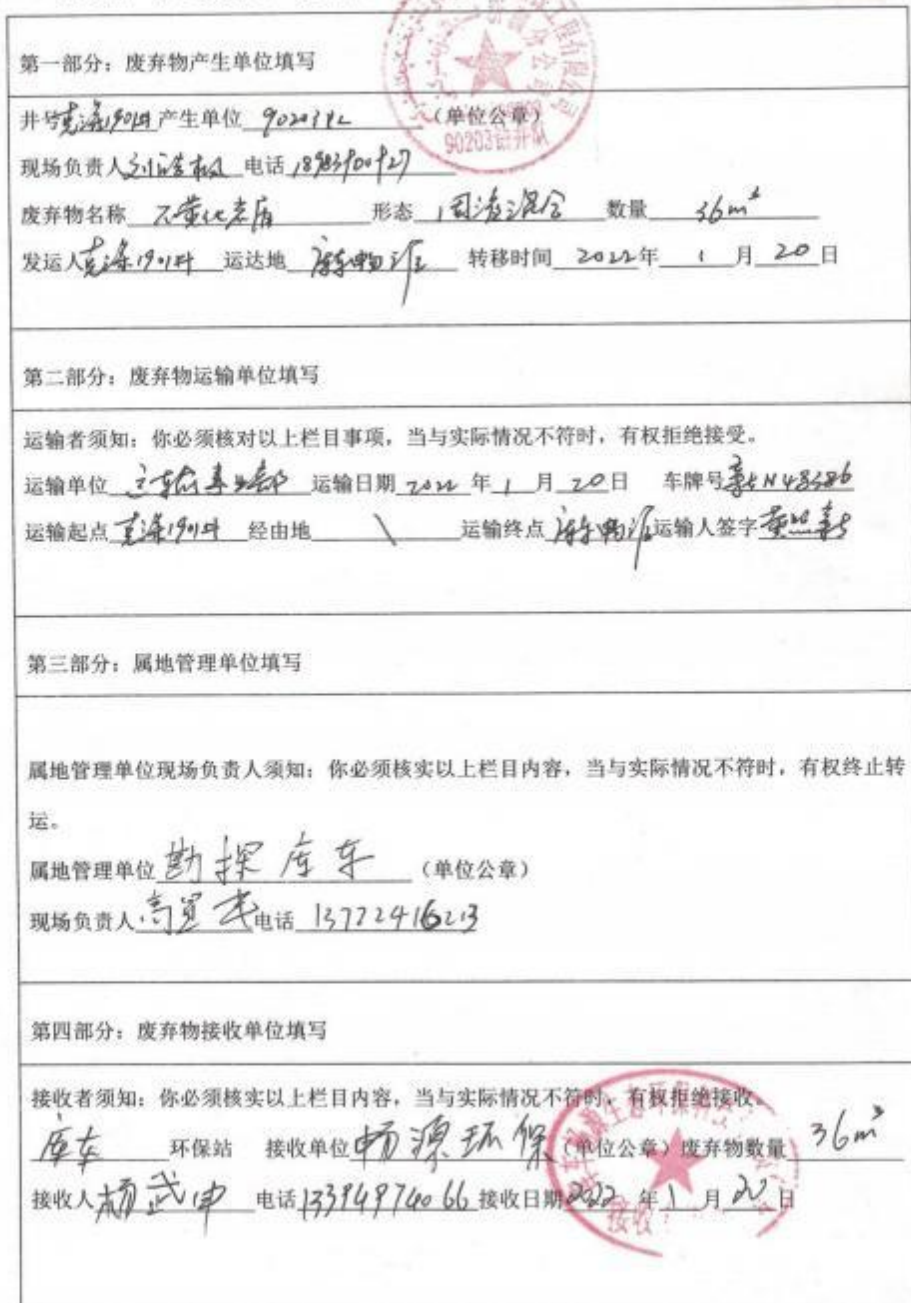 第一部分：废弃物产生单位填写
井号克深1901井 产生单位 90203队 （单位公章）
90203钻井队
现场负责人 电话
废弃物名称 不黄化岩屑 形态 固液混合 数量 36m³
发运人克深1901井 运达地 转移时间 2022年 1 月 20 日
第二部分：废弃物运输单位填写
运输者须知：你必须核对以上栏目事项，当与实际情况不符时，有权拒绝接受。
运输单位 运输日期 2022 年 1 月 20 日 车牌号新N48386
运输起点 克深1901井 经由地 \ 运输终点 运输人签字
第三部分：属地管理单位填写
属地管理单位现场负责人须知：你必须核实以上栏目内容，当与实际情况不符时，有权终止转
运。
属地管理单位 勘探库车 （单位公章）
现场负责人 电话 13772416213
第四部分：废弃物接收单位填写
接收者须知：你必须核实以上栏目内容，当与实际情况不符时，有权拒绝接收。
库车 环保站 接收单位 畅源环保 （单位公章）废弃物数量 36m³
接收人 杨武申 电话 13394974066 接收日期 2022 年 1 月 20 日